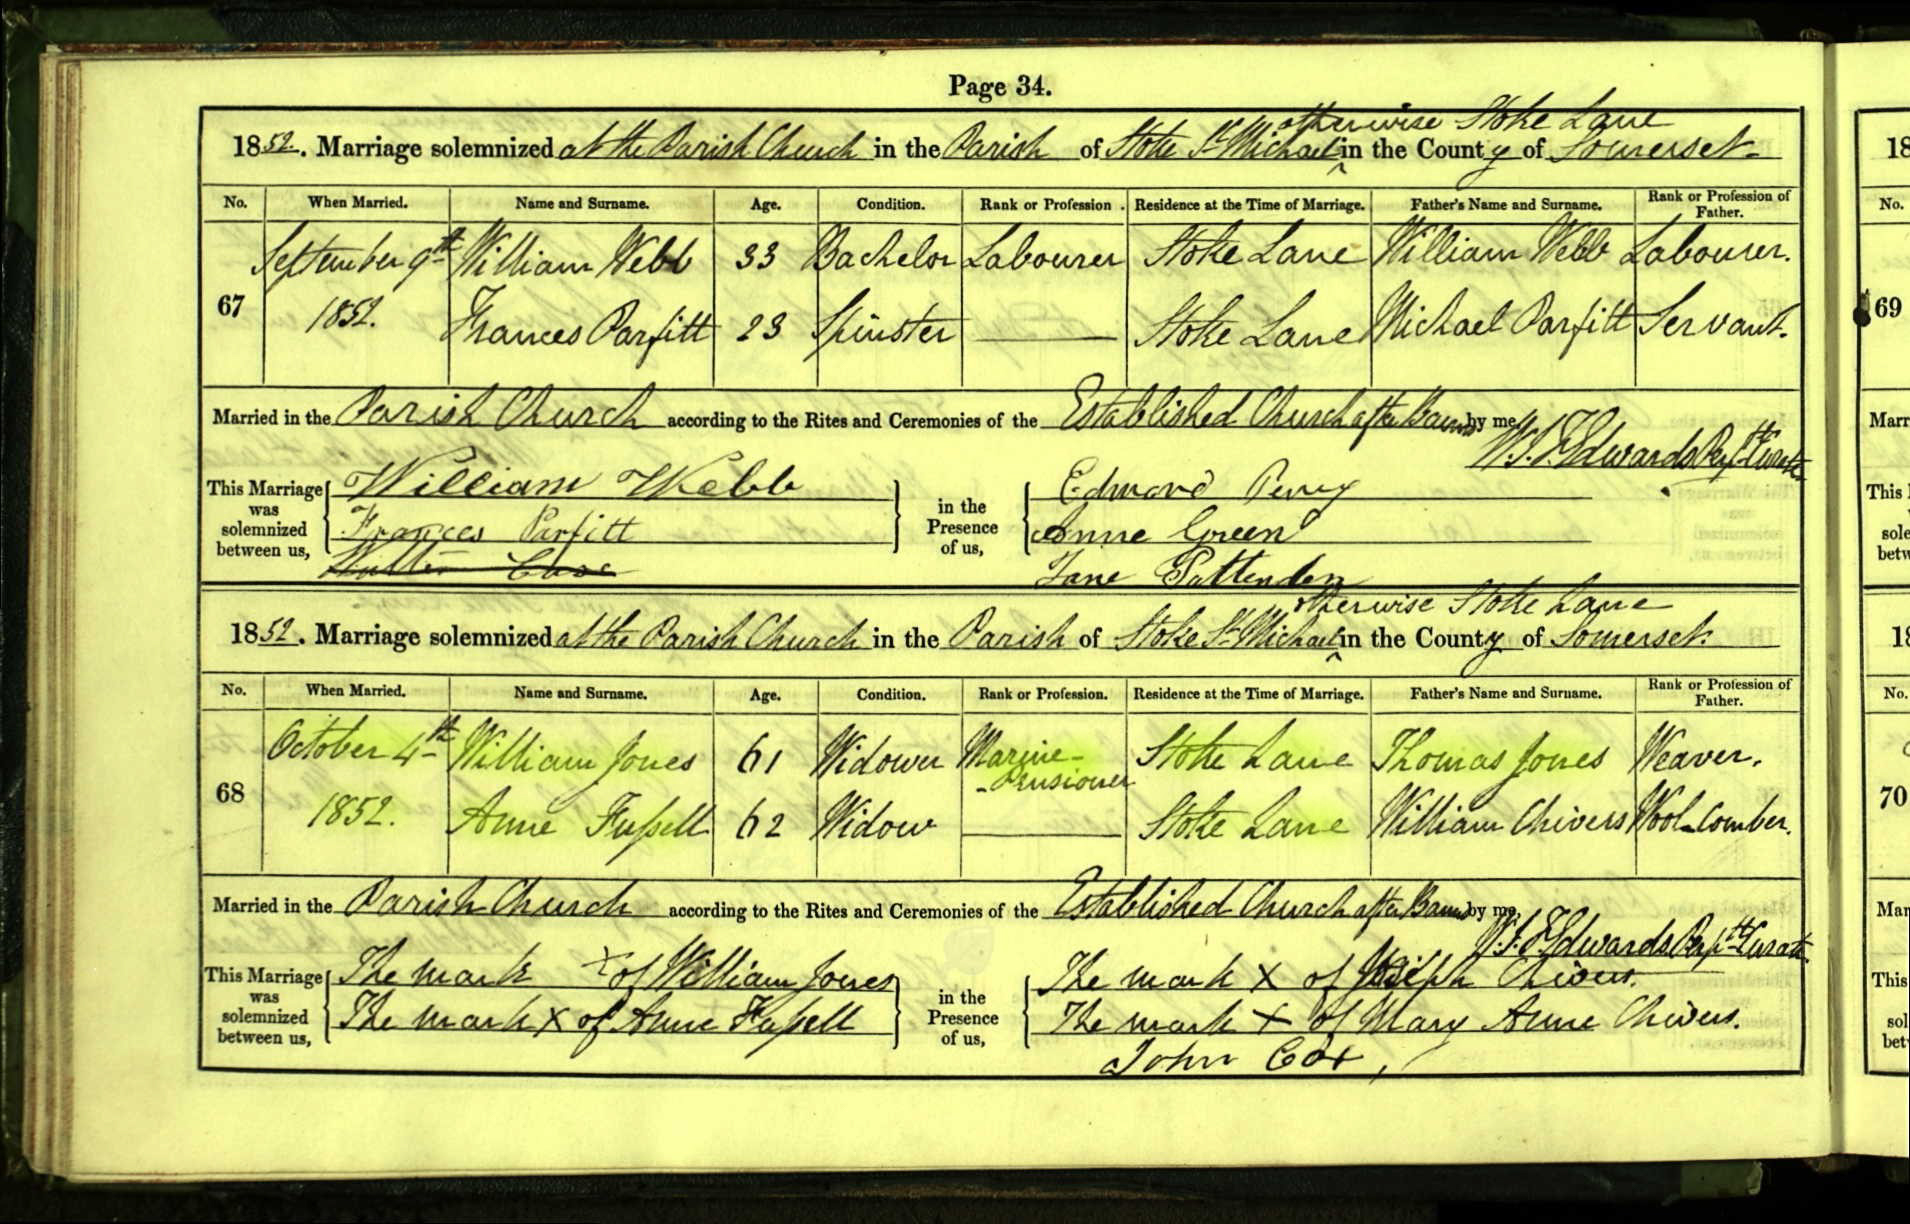 Page 34.
otherwise Stoke Lane
1852. Marriage solemnized at the Parish Church in the Parish of Stoke St Michael ‸ in the County of Somerset.
No. When Married. Name and Surname. Age. Condition. Rank or Profession. Residence at the Time of Marriage. Father's Name and Surname. Rank or Profession of Father.
September 9th William Webb 33 Bachelor Labourer Stoke Lane William Webb Labourer.
67 1852. Frances Parfitt 23 Spinster Stoke Lane Michael Parfitt Servant.
Married in the Parish Church according to the Rites and Ceremonies of the Established Church after Banns by me,
Edwards Perpt Curate
This Marriage was solemnized between us,
William Webb
Frances Parfitt
in the Presence of us,
Edward Perry
Anne Green
Jane Pattenden
otherwise Stoke Lane
1852. Marriage solemnized at the Parish Church in the Parish of Stoke St Michael ‸ in the County of Somerset.
No. When Married. Name and Surname. Age. Condition. Rank or Profession. Residence at the Time of Marriage. Father's Name and Surname. Rank or Profession of Father.
October 4th William Jones 61 Widower Marine-Pensioner Stoke Lane Thomas Jones Weaver.
68 1852. Anne Fussell 62 Widow Stoke Lane William Chivers Wool-Comber.
Married in the Parish Church according to the Rites and Ceremonies of the Established Church after Banns by me,
Edwards Perpt Curate
This Marriage was solemnized between us,
The mark X of William Jones
The mark X of Anne Fussell
in the Presence of us,
The mark X of Joseph Chivers.
The mark X of Mary Anne Chivers.
John Cox,
18
No.
69
Marr
This
sole
betw
18
No.
70
Mar
This
sol
bet